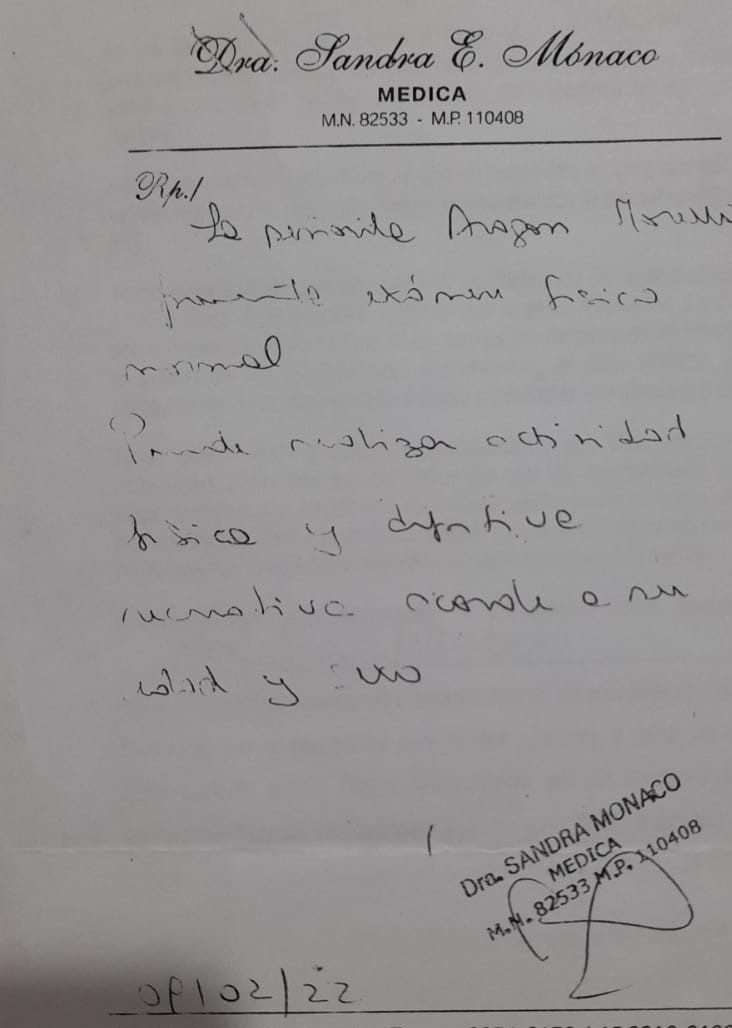 Dra. Sandra E. Mónaco
MEDICA
M.N. 82533 - M.P. 110408
Rp./
La Aragon
presenta exámen fisico
normal
Puede realizar actividad
fisica y deportiva
recreativa acorde a su
edad y sexo
Dra. SANDRA MONACO
MEDICA
M.N. 82533 M.P. 110408
/02/22